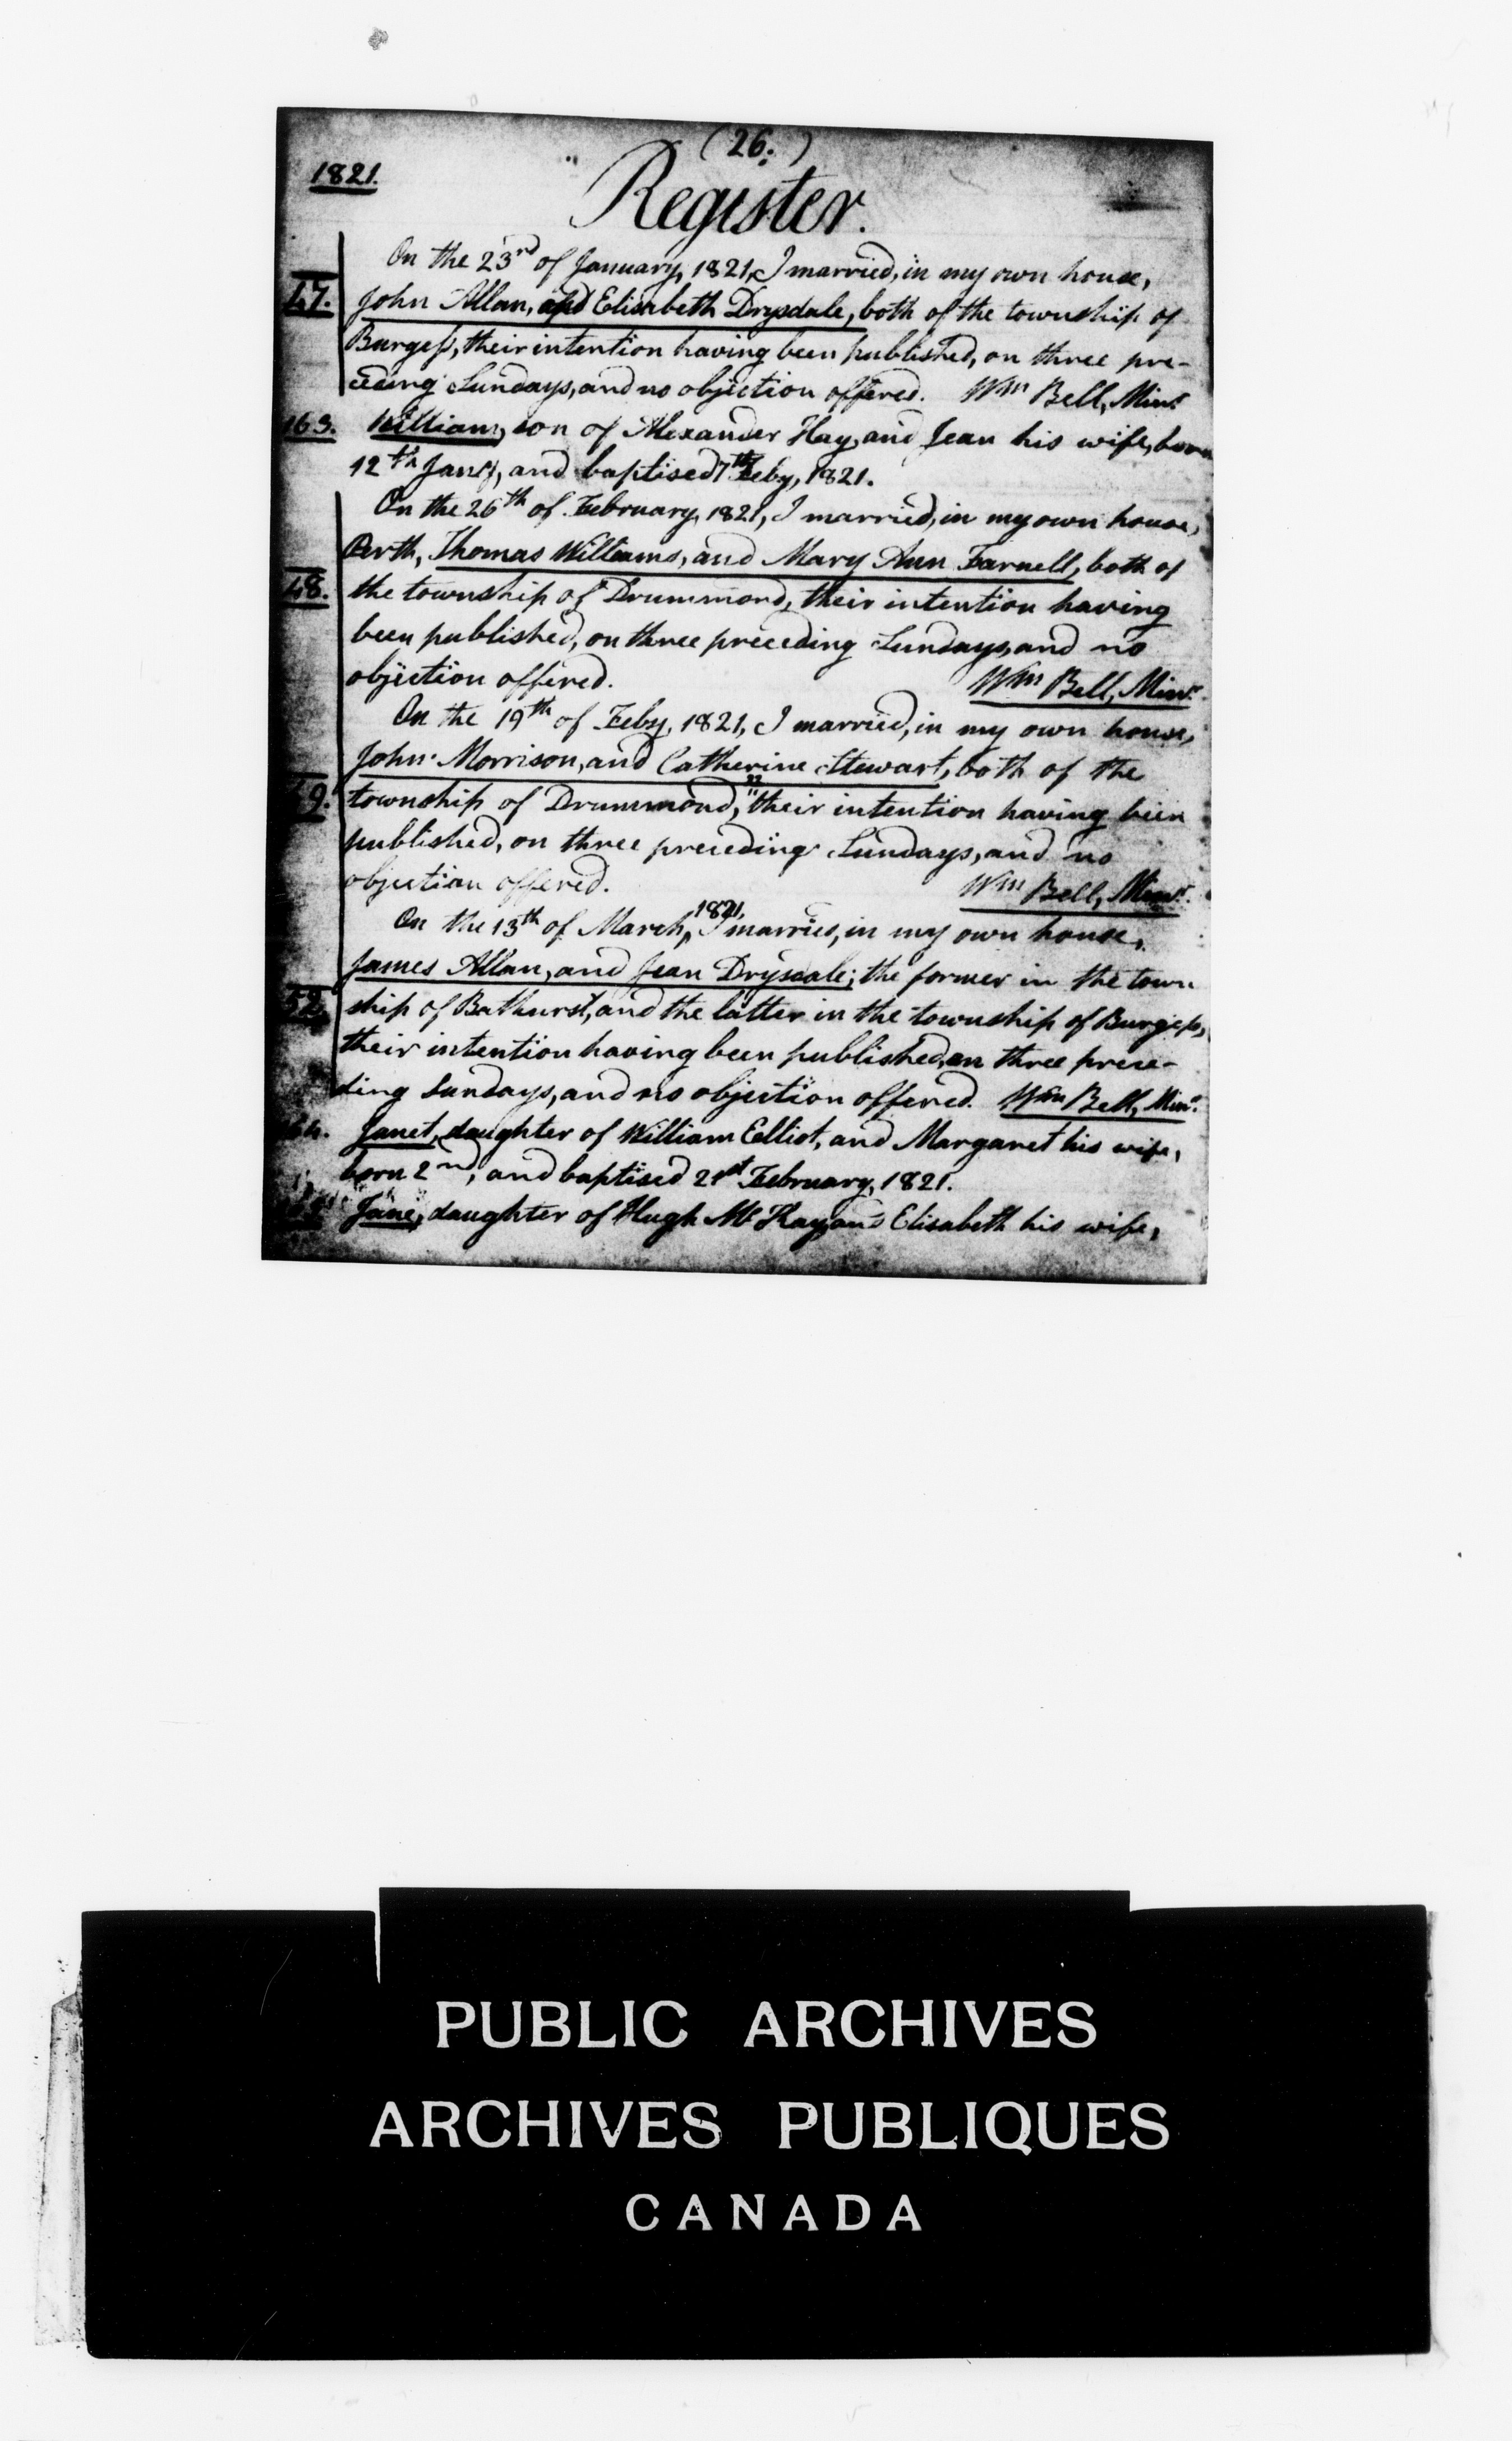 (26.)
1821.
Register.
On the 23rd of January, 1821, I married, in my own house,
47. John Allan, and Elisabeth Drysdale, both of the township of
Burgess, their intention having been published, on three pre-
ceding Sundays, and no objection offered. Wm Bell, Minr.
163. William, son of Alexander Hay, and Jean his wife, born
12th Jany, and baptised 7th Feby, 1821.
On the 26th of February, 1821, I married, in my own house,
Perth, Thomas Williams, and Mary Ann Farnell, both of
48. the township of Drummond, their intention having
been published, on three preceding Sundays, and no
objection offered. Wm Bell, Minr.
On the 19th of Feby, 1821, I married, in my own house,
John Morrison, and Catherine Stewart, both of the
49. township of Drummond, their intention having been
published, on three preceding Sundays, and no
objection offered. Wm Bell, Minr.
On the 13th of March, 1821, I married, in my own house,
James Allan, and Jean Drysdale; the former in the town
52. ship of Bathurst, and the latter in the township of Burgess,
their intention having been published, on three prece-
ding Sundays, and no objection offered. Wm Bell, Minr.
164. Janet, daughter of William Elliot, and Margaret his wife,
born 2nd, and baptised 21st February, 1821.
Jane, daughter of Hugh McKay, and Elisabeth his wife,
PUBLIC ARCHIVES
ARCHIVES PUBLIQUES
CANADA